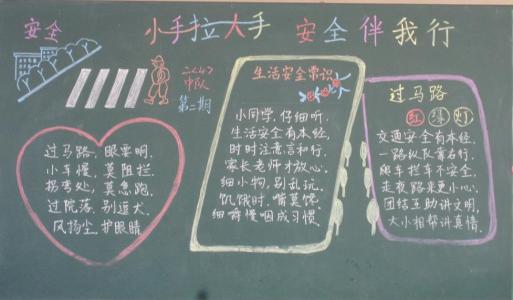 安全
小手拉大手 安全伴我行
二(4)
中队
第二期
过马路，眼要明，
小车慢，莫阻拦，
拐弯处，莫急跑，
过院落，别逗犬，
风扬尘，护眼睛
生活安全常识
小同学，仔细听，
生活安全有本经，
时时注意言和行，
家长老师才放心，
细小物，别乱玩，
饥饿时，嘴莫馋，
细嚼慢咽成习惯，
过马路
红 绿 灯
交通安全有本经，
一路纵队靠右行，
爬车拦车不安全，
走夜路来更小心，
团结互助讲文明，
大小相帮讲真情，